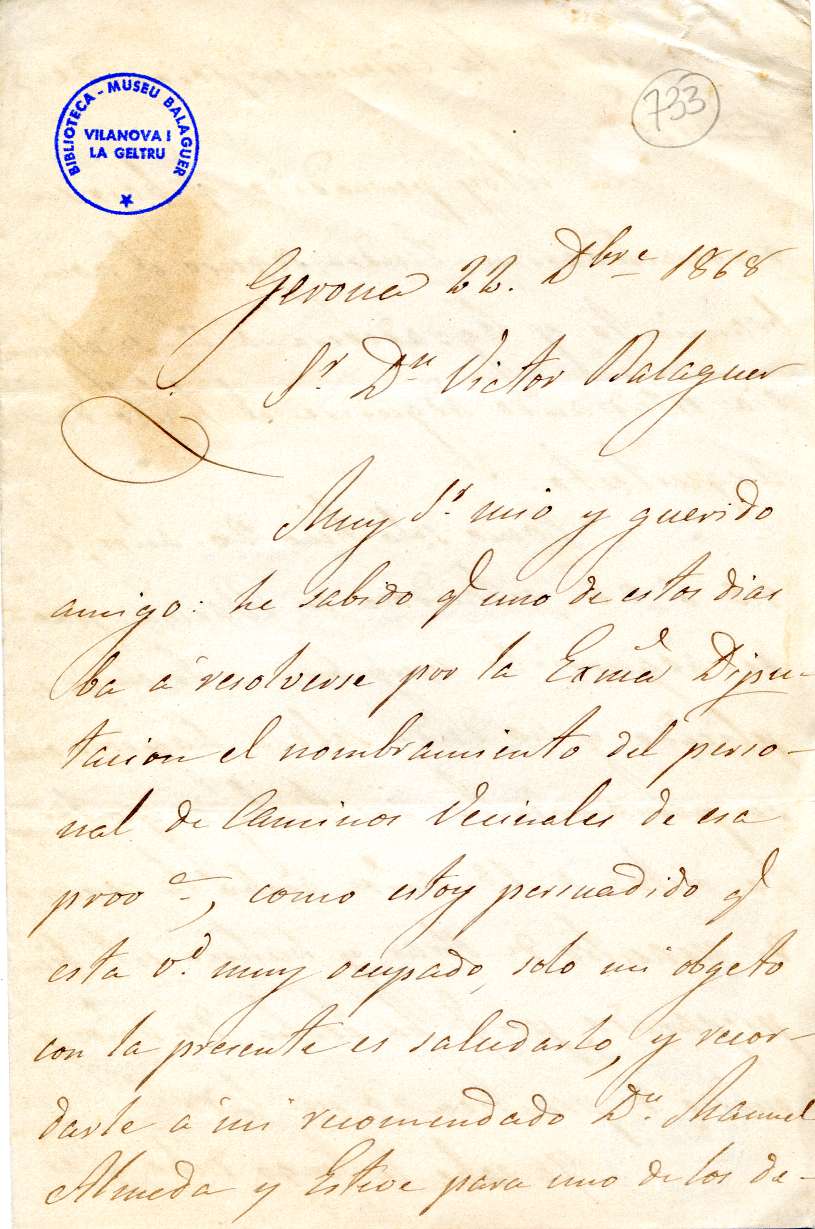 BIBLIOTECA - MUSEU BALAGUER
VILANOVA I
LA GELTRU
733
Gerona 22. Dbre 1868
Sr Dn Victor Balaguer
Muy Sr mio y querido
amigo: he sabido q uno de estos dias
ba á resolverse por la Exma Dipu-
tacion el nombramiento del perso-
nal de Caminos Vecinales de esa
prova, como estoy persuadido q
esta Vd muy ocupado, solo mi obgeto
con la presente es saludarlo, y recor-
darle á mi recomendado Dn Manuel
Almeda y Esteve para uno de los de-